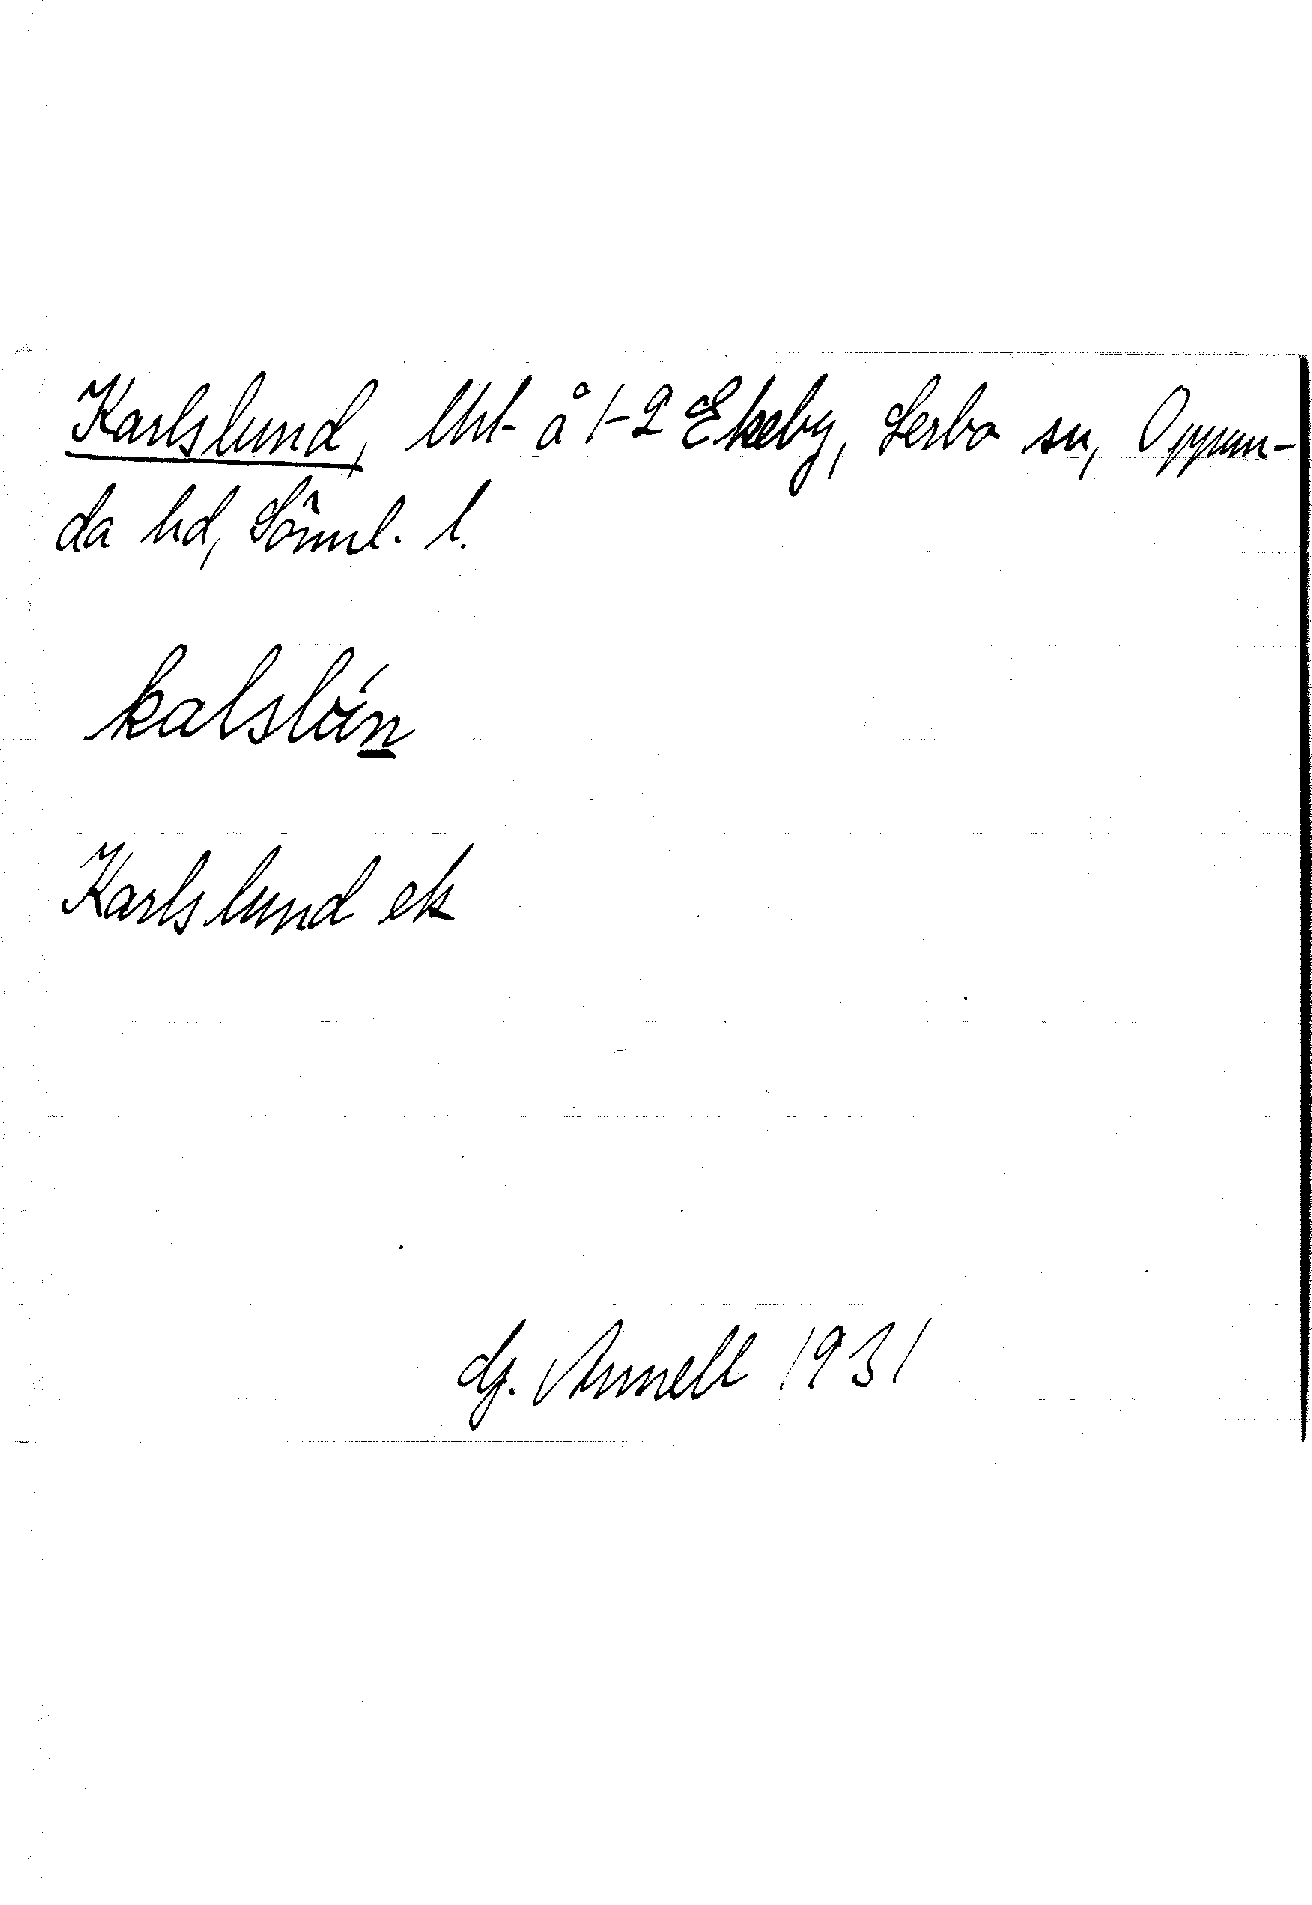 Karlslund, lht å 1-2 Ekeby, Lerbo sn, Oppun-
da hd, Söml. l.
kalslún
Karlslund ek
G. Annell 1931